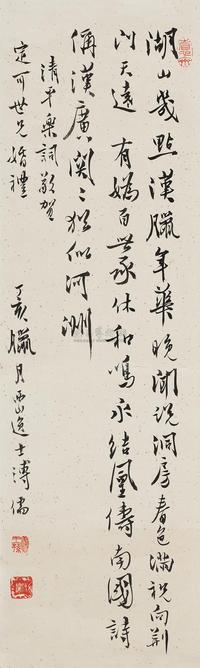 湖山几點漢臘年華晚聞說洞房春色滿祝向荊
門天遠有媯百世承休和鳴永結鳳儔南國詩
偁漢廣關〻猶似河洲
清平樂詞敬賀
定可世兄婚禮
丁亥臘月西山逸士溥儒